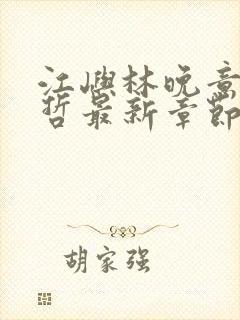 江嶼林晚意
哲最新章節
胡家强